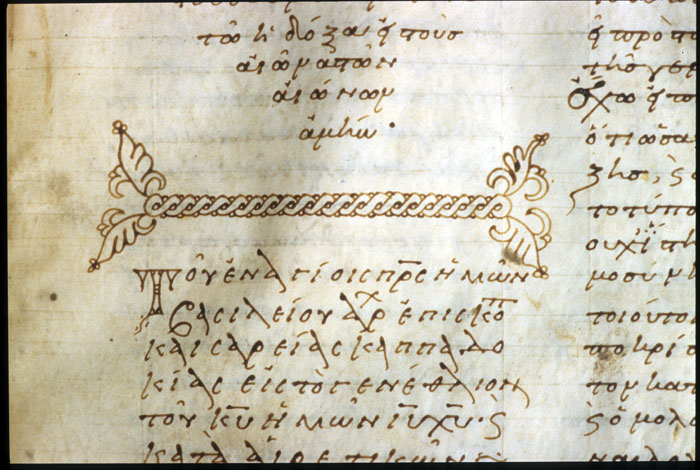 τῶ ἡ δόξα εἰς τοὺς
αἰῶνας τῶν
αἰώνων
ἀμήν ·
Τοῦ ἐν ἁγίοις πρ̅ς ἡμῶν
Βασιλείου ἀρχ ἐπισκόπ
καισαρείας καππαδο
κίας εἰς τὸ γενέθλιον
τοῦ κ̅υ̅ ἡμῶν ι̅υ̅ χ̅υ̅· ϛ
κατὰ αἱρετικῶν
τῆς γε
ὅτι ὡσα
ζης, ϛ
το τύπ
οὐχὶ τη
μοσυν
ποιουτο
ποκριτ
τον κατ
ϛ ὁμολ